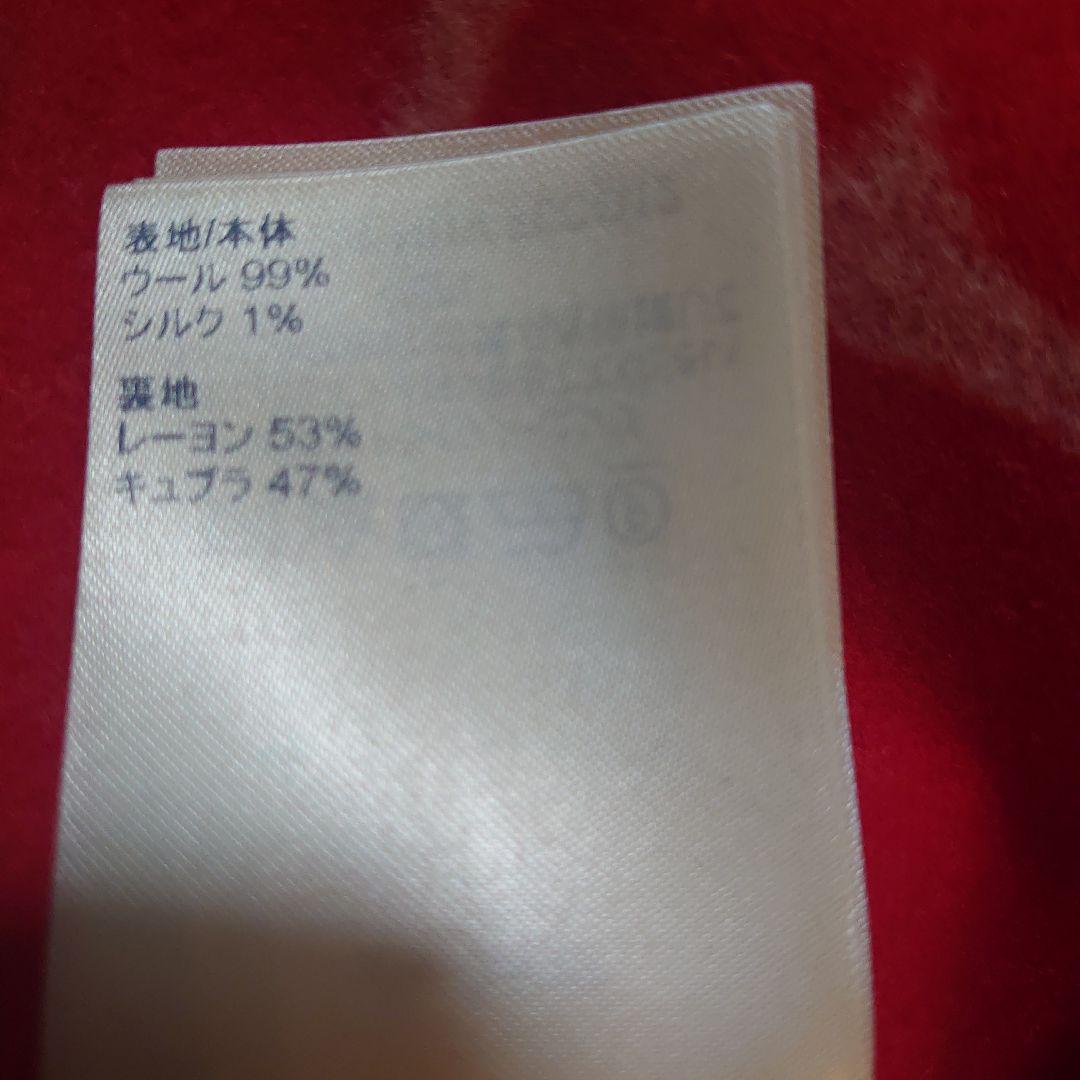 表地/本体
ウール 99%
シルク 1%
裏地
レーヨン 53%
キュプラ 47%